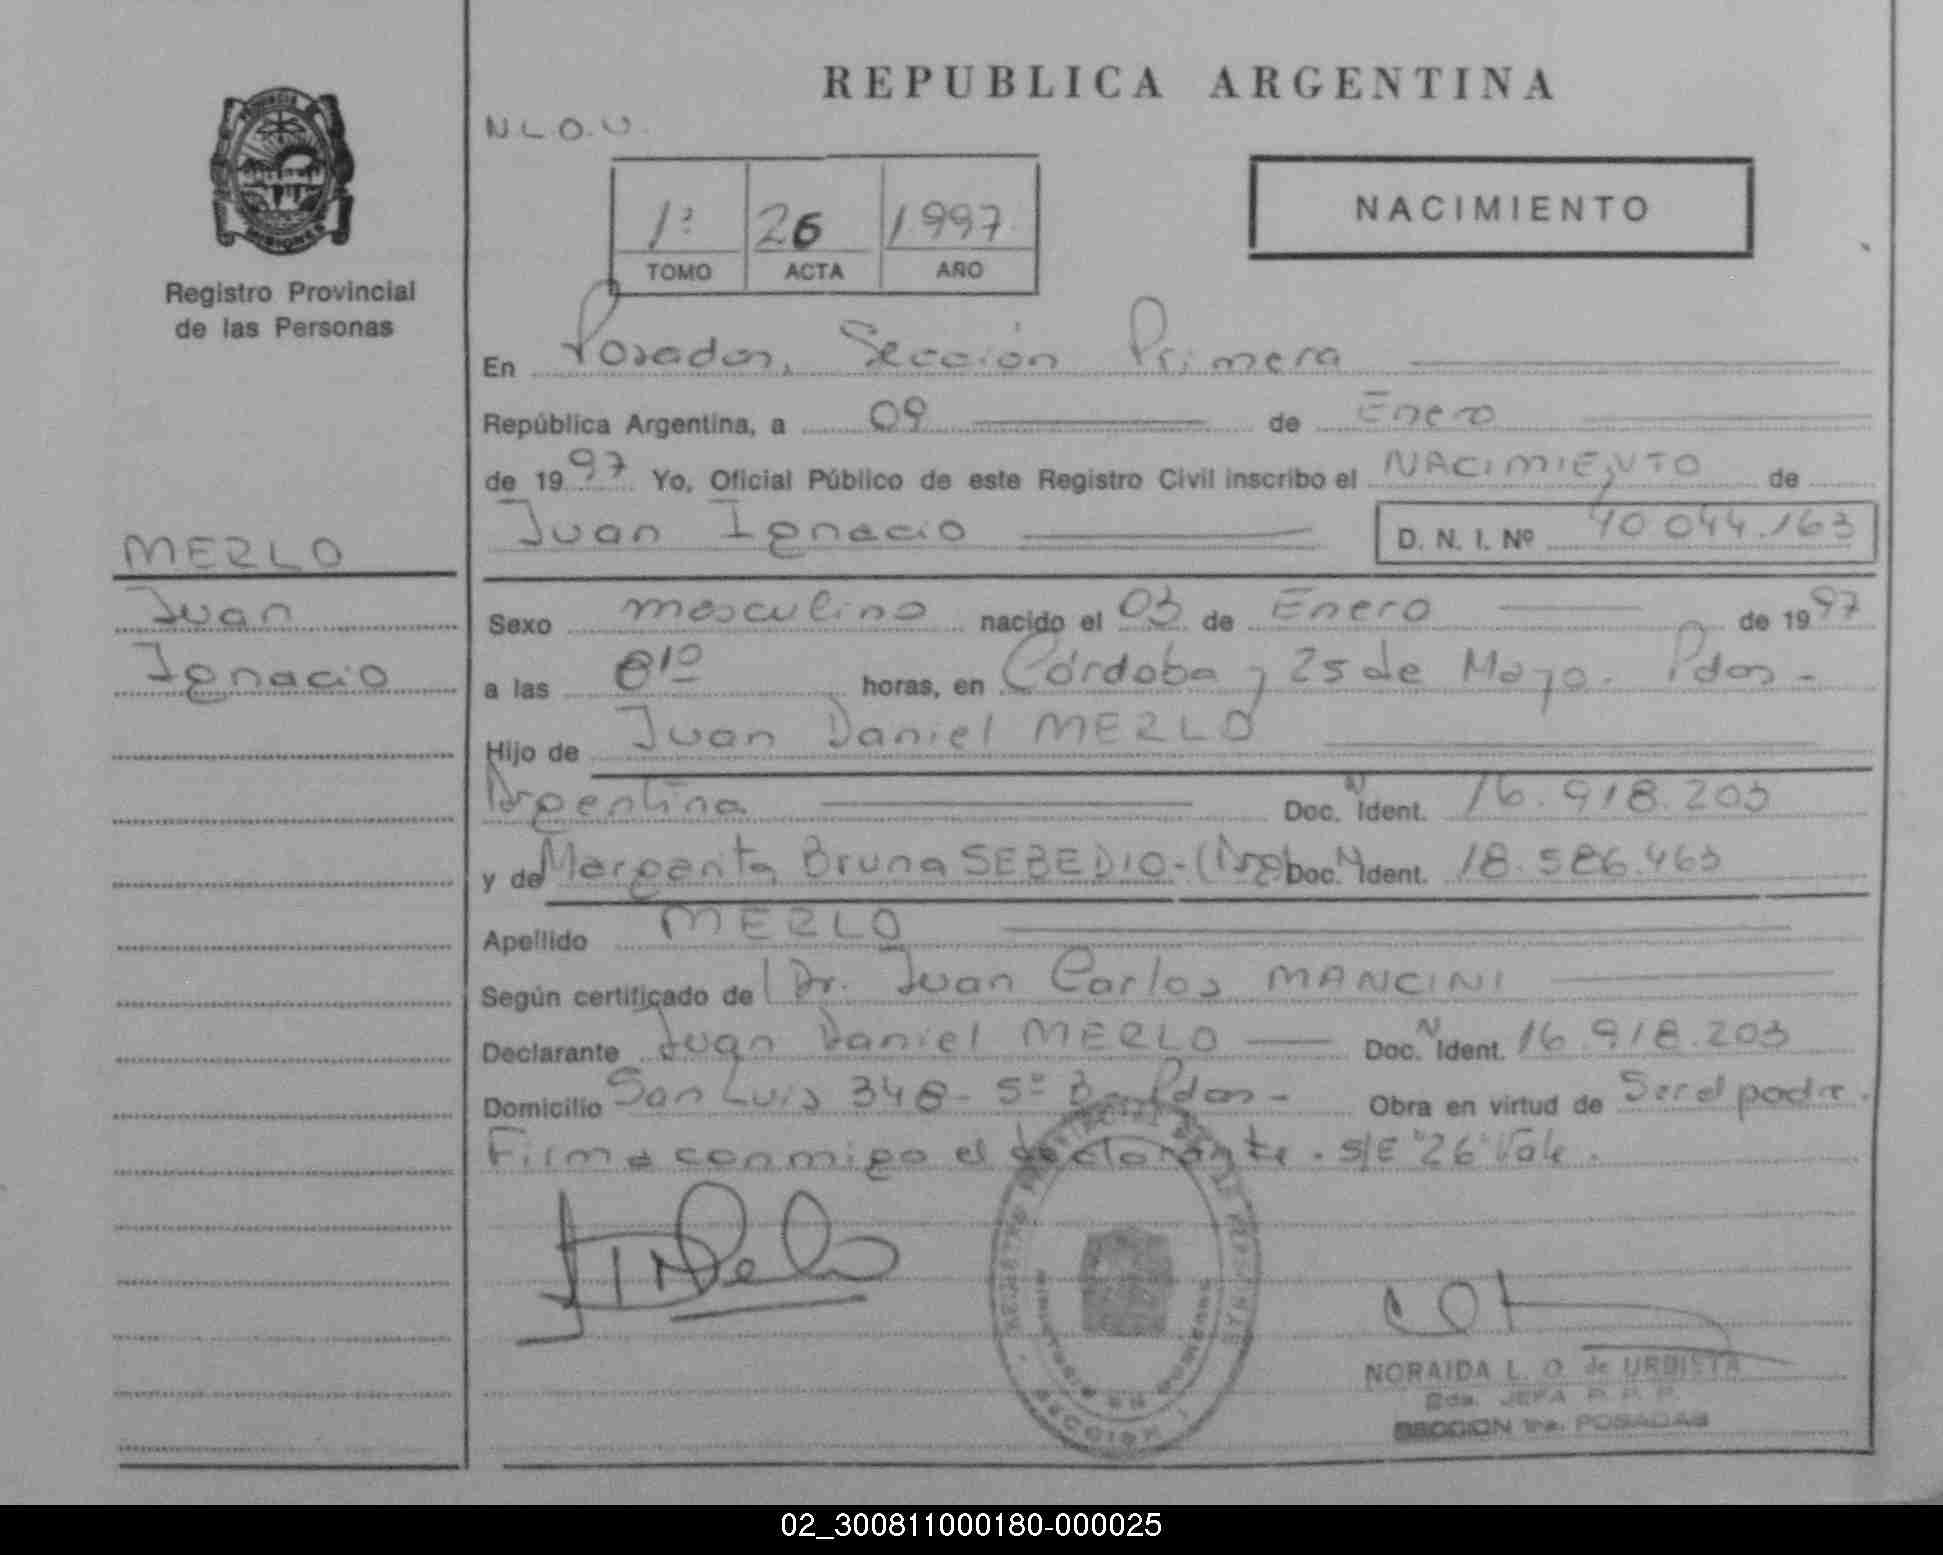 REPUBLICA ARGENTINA
N.L.O.U.
1º 26 1997
TOMO ACTA AÑO
NACIMIENTO
PROVINCIA
MISIONES
Registro Provincial
de las Personas
En Posadas, Sección Primera
República Argentina, a 09 de Enero
de 1997 Yo, Oficial Público de este Registro Civil inscribo el NACIMIENTO de
Juan Ignacio D. N. I. Nº 40 044.163
MERLO
Juan
Ignacio
Sexo masculino nacido el 03 de Enero de 1997
a las 8 10 horas, en Córdoba y 25 de Mayo. Pdas-
Hijo de Juan Daniel MERLO
Argentina Doc. N Ident. 16.918.203
y de Margarita Bruna SEBEDIO-(Arg) Doc. N Ident. 18.586.463
Apellido MERLO
Según certificado de l Dr. Juan Carlos MANCINI
Declarante Juan Daniel MERLO Doc. N Ident. 16.918.203
Domicilio San Luis 348- 5º B- Pdas- Obra en virtud de Ser el padre.
Firma conmigo el declarante. S/E "26" Vale.
REGISTRO PROVINCIAL DE LAS PERSONAS
SECCION I
NORAIDA L. O. de URBIETA
2da. JEFA R. P. P.
SECCION 1ra. POSADAS
02_300811000180-000025